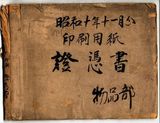 昭和十年十一月分
印刷用紙
證憑書
物品部